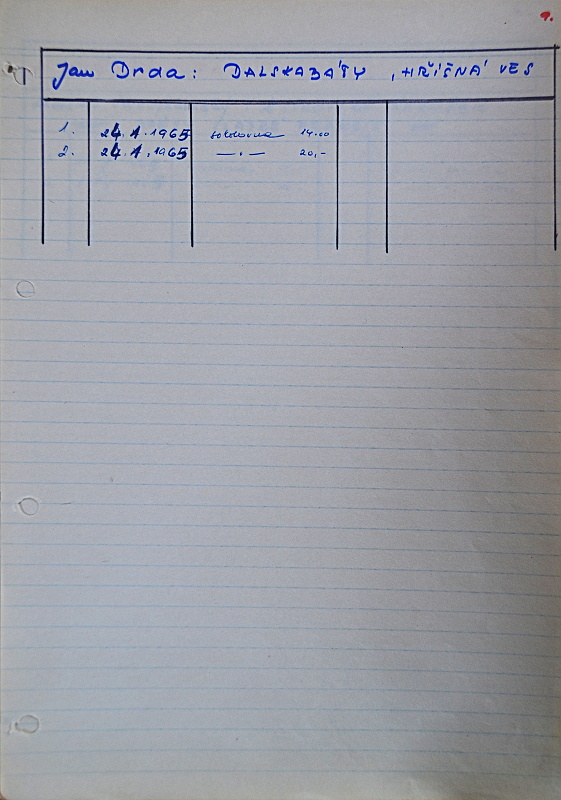 9.
Jan Drda: DALSKABÁTY, HŘÍŠNÁ VES
1. 24.1.1965 sokolovna 14.00
2. 24.1.1965 —.— 20,-